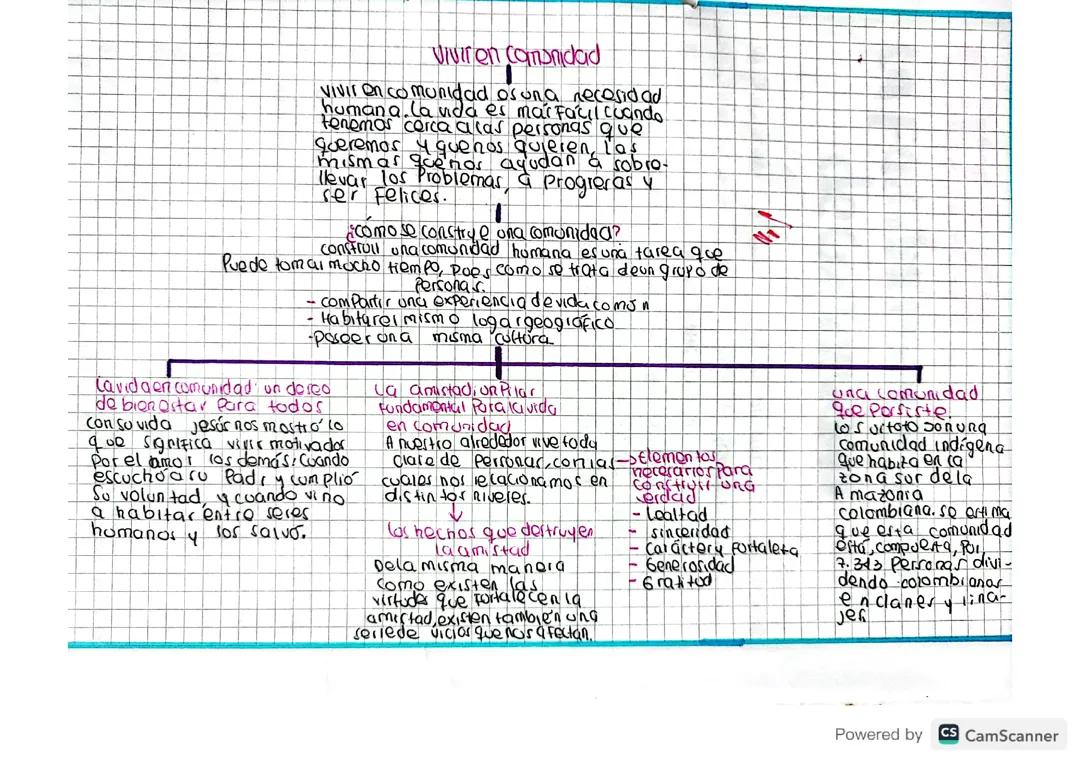 vivir en comunidad
vivir en comunidad es una necesidad
humana. La vida es mas facil cuando
tenemos cerca a las personas que
queremos y que nos quieren, las
mismas que nos ayudan a sobre-
llevar los problemas, a progresas y
ser felices.
¿cómo se constrye una comunidad?
construir una comunidad humana es una tarea que
Puede tomar mucho tiempo, pues como se trata de un grupo de
Personas.
- compartir una experiencia de vida común
- Habitar el mismo lugar geográfico
- poseer una misma cultura
La vida en comunidad: un deseo
de bienestar para todos
con su vida Jesús nos mostró lo
que significa vivir motivados
por el amor los demás: Cuando
escucho a su Padr y cumplió
su voluntad, y cuando vino
a habitar entre seres
humanos y los salvo.
La amistad, un Pilar
fundamental Para la vida
en comunidad
A nuestro alrededor vive toda
clase de personas, con las
cuales nos relacionamos en
distintos niveles.
los hechos que destruyen
la amistad
De la misma manera
como existen las
virtudes que fortalecen la
amistad, existen también una
serie de vicios que nos afectan.
Elementos
necesarios Para
construir una
verdad
- Lealtad
- sinceridad
- Carácter y fortaleza
- Generosidad
- Gratitud
una comunidad
que Persiste.
Los uitoto son una
comunidad indígena
que habita en la
zona sur de la
Amazonia
colombiana. se estima
que esta comunidad
está, compuesta, Por,
7.343 Personas divi-
dendo colombianas
en clanes y lina-
jes
Powered by CS CamScanner